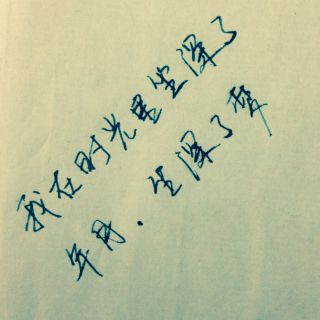 我在时光里坐深了
年月.坐深了